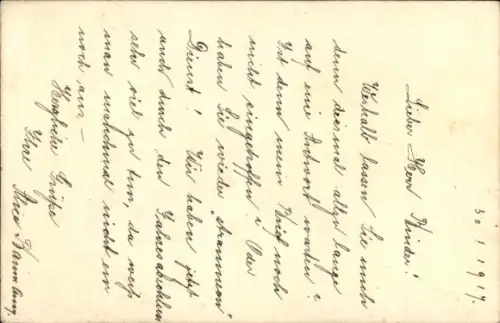 30.1.1917.
Lieber Herr Winder!
Weshalb lassen Sie mich
denn diesmal allzu lange
auf eine Antwort warten?
Ist denn mein Brief noch
nicht eingetroffen? Oder
haben Sie wieder "strammen"
Dienst! Wir haben jetzt
auch durch den Jahresabschluss
sehr viel zu tun, da weiß
man manchmal nicht ein
noch aus. –
Herzliche Grüße
Ihre